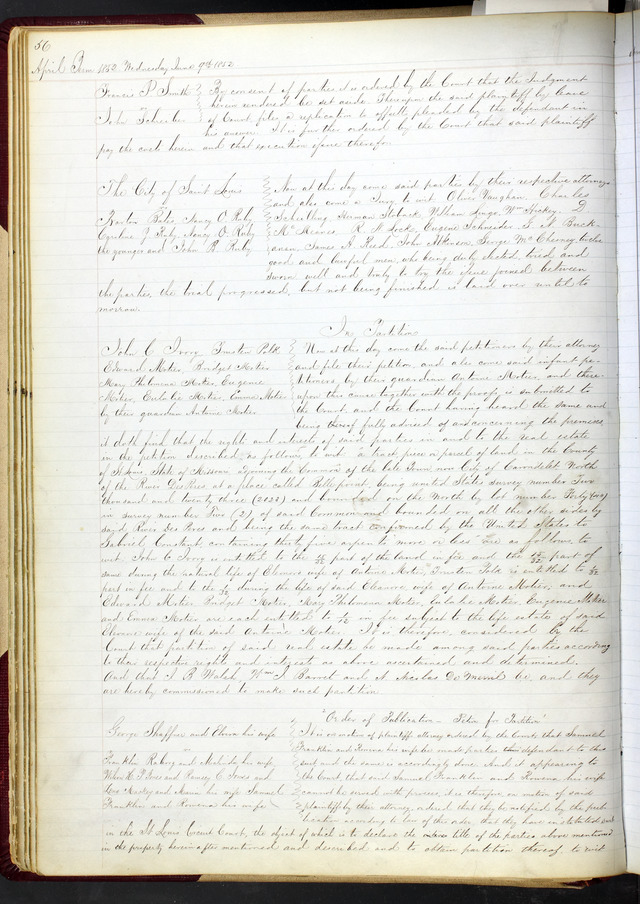 56
April Term 1852 Wednesday June 9th 1852
Francis P. Smith
vs
John Scheibe
By consent of parties it is ordered by the Court that the Judgment
herein rendered be set aside. Thereupon the said plaintiff by leave
of Court files a replication to offsetts pleaded by the defendant in
his answer. It is further ordered by the Court that said plaintiff
pay the costs herein and that execution issue therefor.
The City of Saint Louis
vs
Nancy O Ruby
Ruby Nancy O Ruby
the younger and John R Ruby
Now at this day come said parties by their respective attorneys
and also come a Jury to wit Oliver Vaughan, Charles
Herman William Wm Hickey, D
R. N. Lock, Eugene Schneider, Buck-
anan, James A. Reed, John Atkinson, George McChesney, twelve
good and lawful men, who being duly elected, tried and
sworn well and truly to try the issue joined between
the parties, the trial progressed, but not being finished is laid over until to
morrow.
In Partition
John C Ivory Trusten Polk
Edward Motier, Bridget Motier
Mary Philomene Motier, Eugene
Motier, Eulalie Motier, Emma Motier
by their guardian Antoine Motier
Now at this day come the said petitioners by their attorney
and file their petition, and also come said infant pe-
titioners, by their guardian Antoine Motier, and there-
upon this cause together with the proofs is submitted to
the Court, and the Court having heard the same and
being thereof fully advised of and concerning the premises,
it doth find that the rights and interests of said parties in and to the real estate
in the petition described, as follows to wit a tract piece or parcel of land in the County
of St Louis, State of Missouri adjoining the Commons of the late Town now City of Carondelet North
of the River Des Peres at a place called Bellepoint, being united States survey number Two
thousand and twenty three (2023) and bounded on the North by lot number Forty
in survey number Five of said Commons and bounded on all the other sides by
said River Des Peres and being the same tract confirmed by the United States to
Gabriel Constant containing thirty five arpens more or less are as follows to
wit. John C Ivory is entitled to the part of the land in fee and the part of
same during the natural life of wife of Antoine Motier Trusten Polk is entitled to
part in fee and to the during the life of said wife of Antoine Motier, and
Edward Motier Bridget Motier, Mary Philomena Motier, Eulalie Motier, Eugenie Motier
and Emma Motier are each entitled to in fee subject to the life estate of said
wife of the said Antoine Motier. It is therefore, considered by the
Court that partition of said real estate be made among said parties according
to their respective rights and interests as above ascertained and determined.
And that J B Walsh, Wm J Barret and A Nicolas De Menil be and they
are hereby commissioned to make such partition
Order of Publication - Petition for Partition
George Shaffner and his wife
vs
Franklin Raborg and Malinda his wife
and Ramsey C. Jones and
Mackey and his wife Samuel
Franklin and Rowena his wife
It is on motion of plaintiffs attorney ordered by the Court that Samuel
Franklin and Rowena his wife be made parties defendant to this
suit and the same is accordingly done. And it appearing to
the Court that said Samuel Franklin and Rowena his wife
cannot be served with process, it is therefore on motion of said
plaintiff by their attorney ordered that they be notified by the pub-
lication according to law of this order that they have instituted suit
in the St Louis Circuit Court, the object of which is to declare the title of the parties above mentioned
in the property hereinafter mentioned and described and to obtain partition thereof, to wit